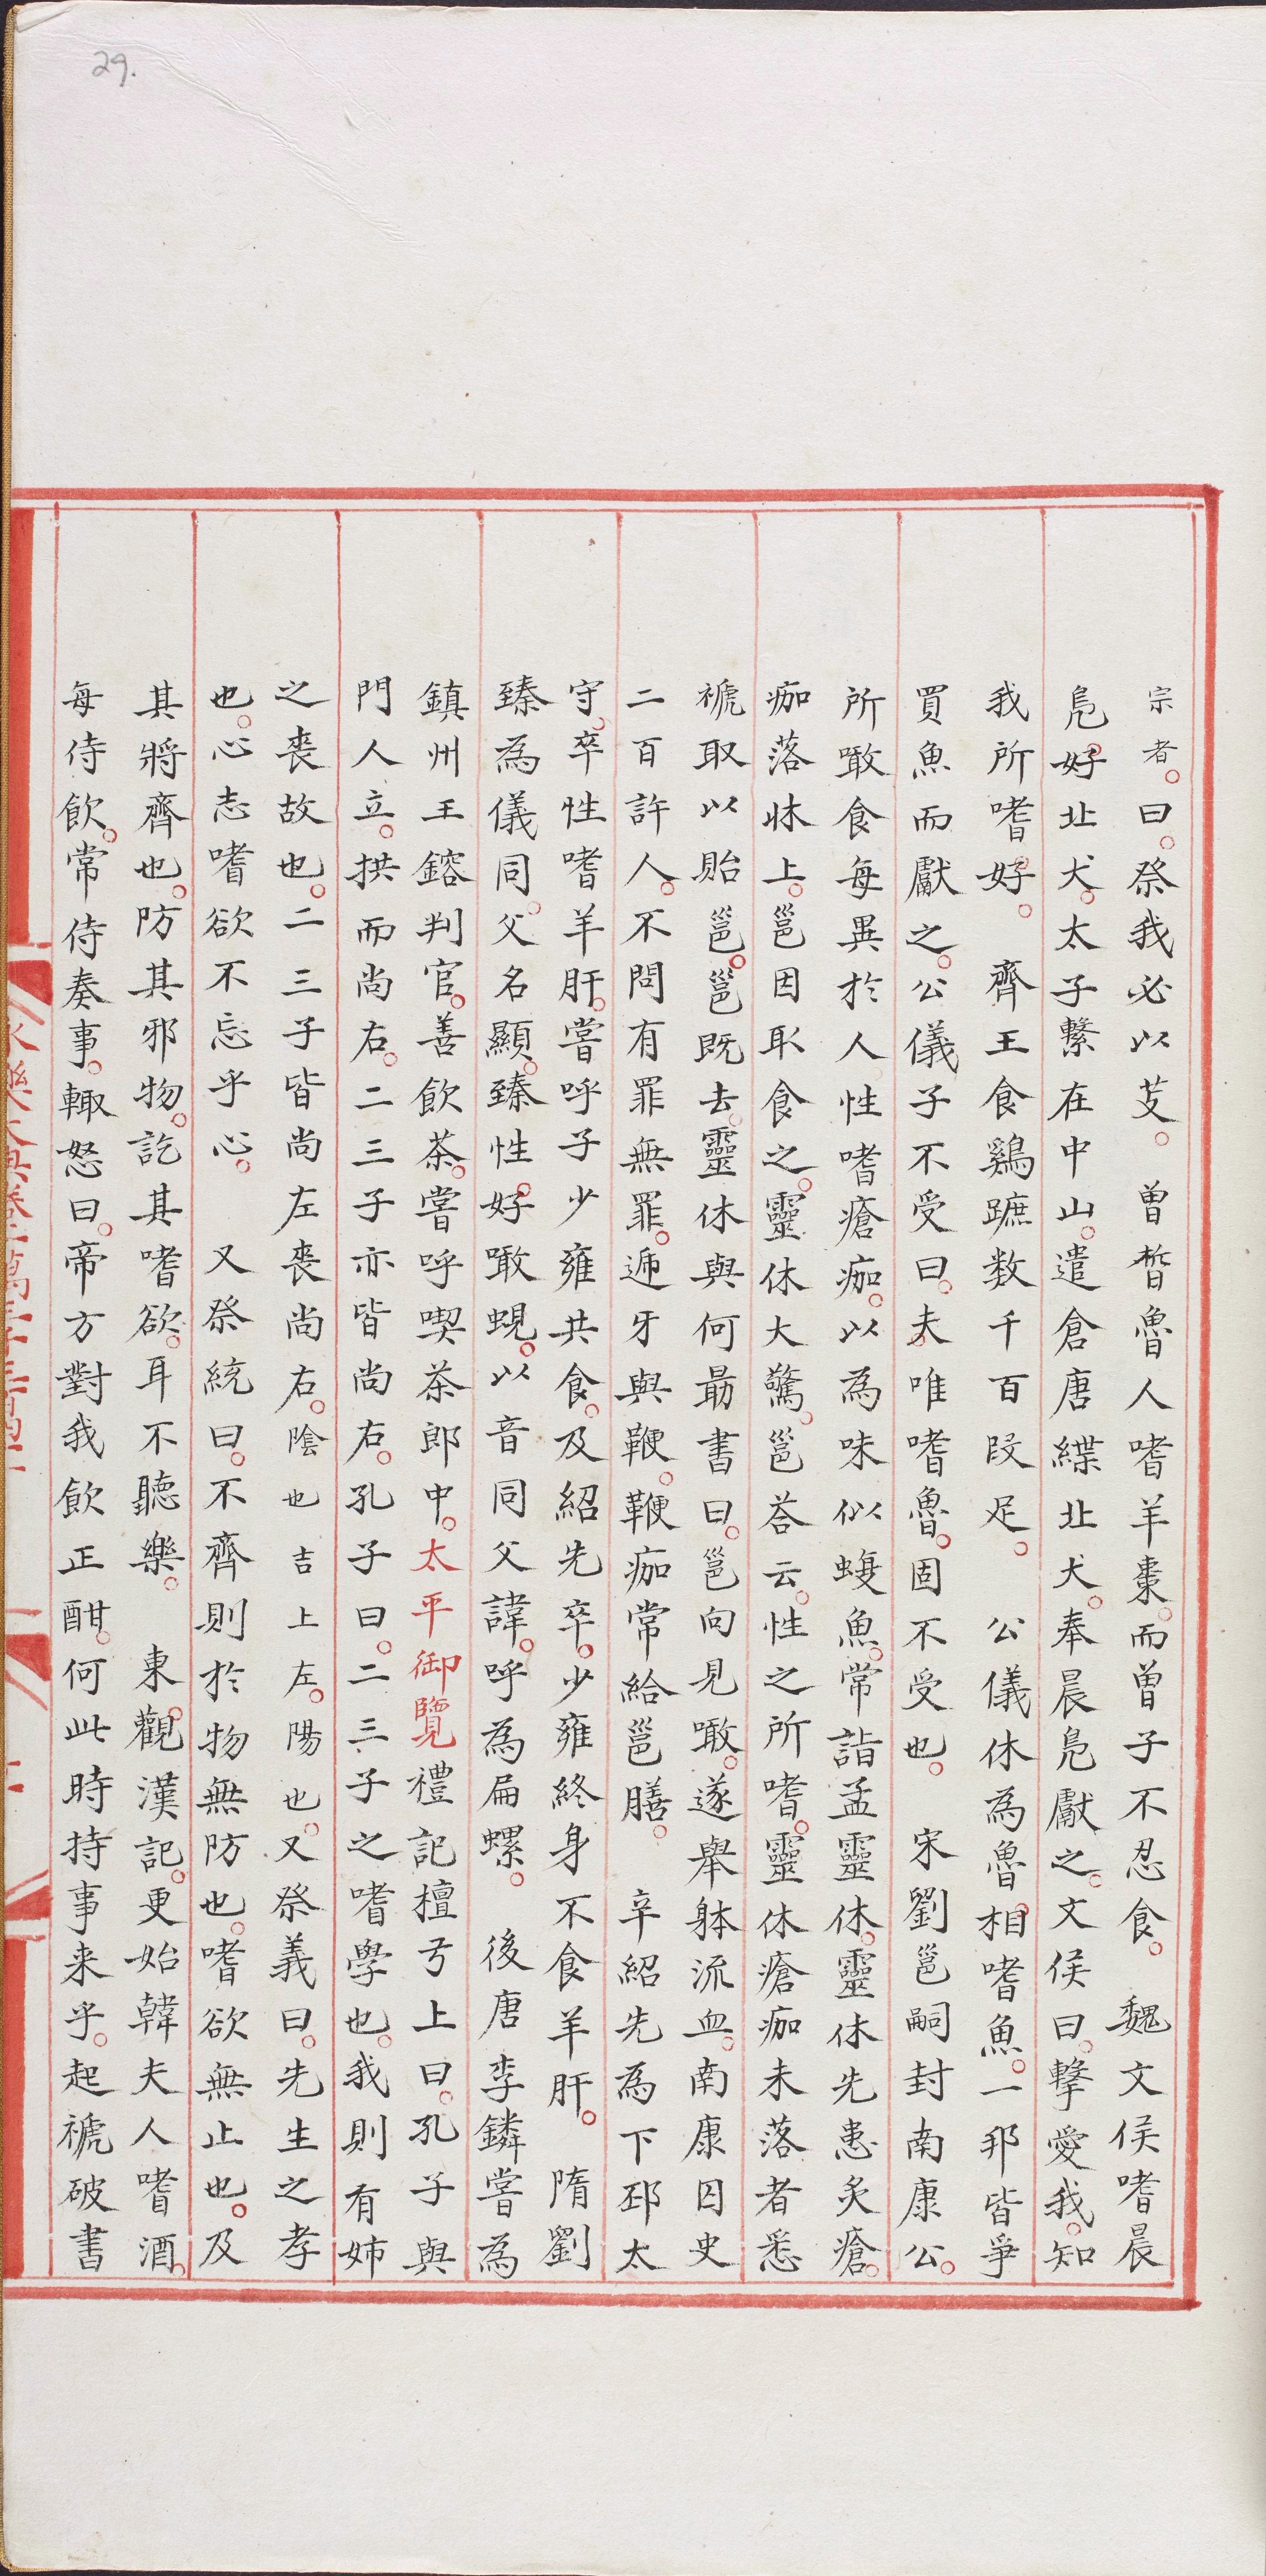 29.
宗者。曰。祭我必以芰。 曾晳魯人嗜羊棗。而曾子不忍食。 魏文侯嗜晨
鳧。好北犬。太子繫在中山。遣倉唐緤北犬。奉晨鳧獻之。文侯曰。擊愛我。知
我所嗜好。 齊王食鷄蹠數千百叚足。 公儀休為魯相嗜魚。一邦皆爭
買魚而獻之。公儀子不受曰。夫唯嗜魯。固不受也。 宋劉邕嗣封南康公。
所噉食每異於人性嗜瘡痂。以為味似蝮魚。常詣孟靈休。靈休先患炙瘡。
痂落牀上。邕因取食之。靈休大驚。邕荅云。性之所嗜。靈休瘡痂未落者悉
褫取以貽邕。邕既去。靈休與何朂書曰。邕向見噉。遂舉躰流血。南康囚史
二百許人。不問有罪無罪。遞牙與鞭。鞭痂常給邕膳。 辛紹先為下邳太
守。卒性嗜羊肝。嘗呼子少雍共食。及紹先卒。少雍終身不食羊肝。 隋劉
臻為儀同。父名顯。臻性好噉蜆。以音同父諱。呼為扁螺。 後唐李鏻嘗為
鎮州王鎔判官。善飲茶。嘗呼喫茶郎中。太平御覽禮記檀弓上曰。孔子與
門人立。拱而尚右。二三子亦皆尚右。孔子曰。二三子之嗜學也。我則有姊
之喪故也。二三子皆尚左喪尚右。陰也吉上左。陽也。又祭義曰。先生之孝
也。心志嗜欲不忘乎心。 又祭統曰。不齊則於物無防也。嗜欲無止也。及
其將齊也。防其邪物。訖其嗜欲。耳不聽樂。 東觀漢記。更始韓夫人嗜酒。
每侍飲。常侍奏事。輙怒曰。帝方對我飲正酣。何此時持事来乎。起褫破書